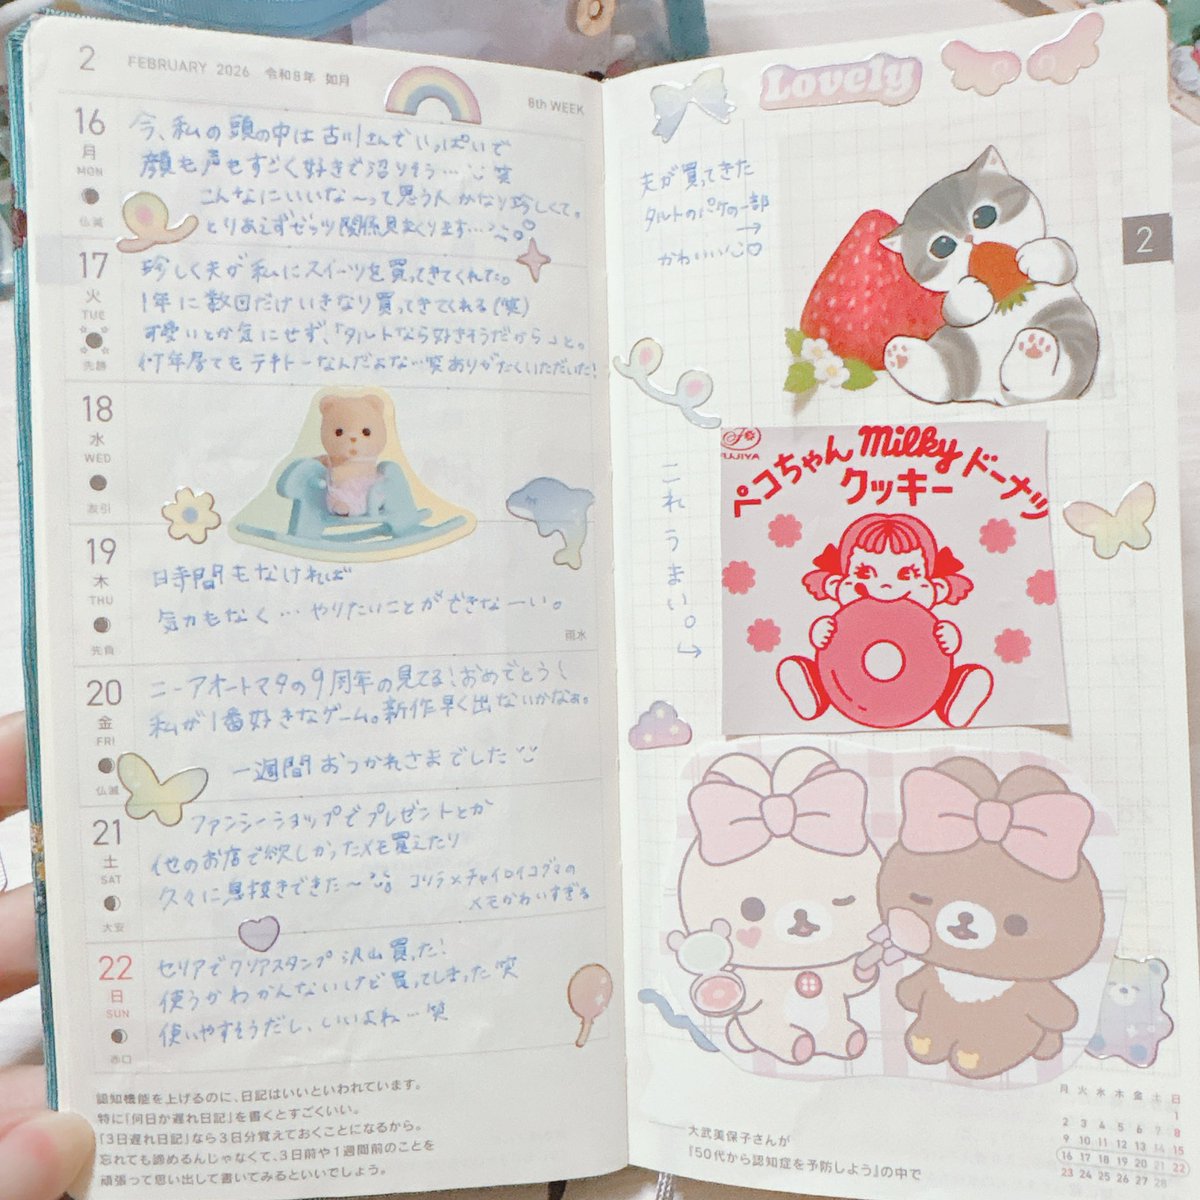 2 FEBRUARY 2026 令和8年 如月
8th WEEK
16
月
MON
仏滅
今、私の頭の中は古川さんでいっぱいで
顔も声もすごく好きで沼りそう…笑
こんなにいいな〜って思う人かなり珍しくて。
とりあえずゼッツ関係見まくります…
17
火
TUE
先勝
珍しく夫が私にスイーツを買ってきてくれた。
1年に数回だけいきなり買ってきてくれる(笑)
可愛いとか気にせず、「タルトなら好きそうだから」と。
何年居てもテキトーなんだよな…笑ありがたくいただいた!
18
水
WED
友引
19
木
THU
先負
時間もなければ
気力もなく…やりたいことができなーい。
雨水
20
金
FRI
仏滅
ニーアオートマタの9周年の見てる!おめでとう!
私が1番好きなゲーム。新作早く出ないかなぁ。
一週間おつかれさまでした
21
土
SAT
大安
ファンシーショップでプレゼントとか
他のお店で欲しかったメモ買えたり
久々に息抜きできた〜 コリラ×チャイロイコグマの
メモかわいすぎる
22
日
SUN
赤口
セリアでクリアスタンプ沢山買った!
使うかわかんないけど買ってしまった笑
使いやすそうだし、いいよね…笑
認知機能を上げるのに、日記はいいといわれています。
特に「何日か遅れ日記」を書くとすごくいい。
「3日遅れ日記」なら3日分覚えておくことになるから。
忘れても諦めるんじゃなくて、3日前や1週間前のことを
頑張って思い出して書いてみるといいでしょう。
Lovely
夫が買ってきた
タルトのパケの一部
→
かわいい
2
これうまい。→
FUJIYA
ペコちゃん Milky ドーナツ
クッキー
大武美保子さんが
『50代から認知症を予防しよう』の中で
月 火 水 木 金 土 日
1
2 3 4 5 6 7 8
9 10 11 12 13 14 15
16 17 18 19 20 21 22
23 24 25 26 27 28